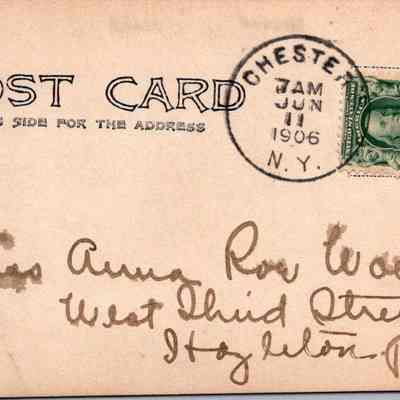 OST CARD
S SIDE FOR THE ADDRESS
CHESTER
7AM
JUN
11
1906
N.Y.
ss Anna Roe Wo
West Third Stre
Hazleton P